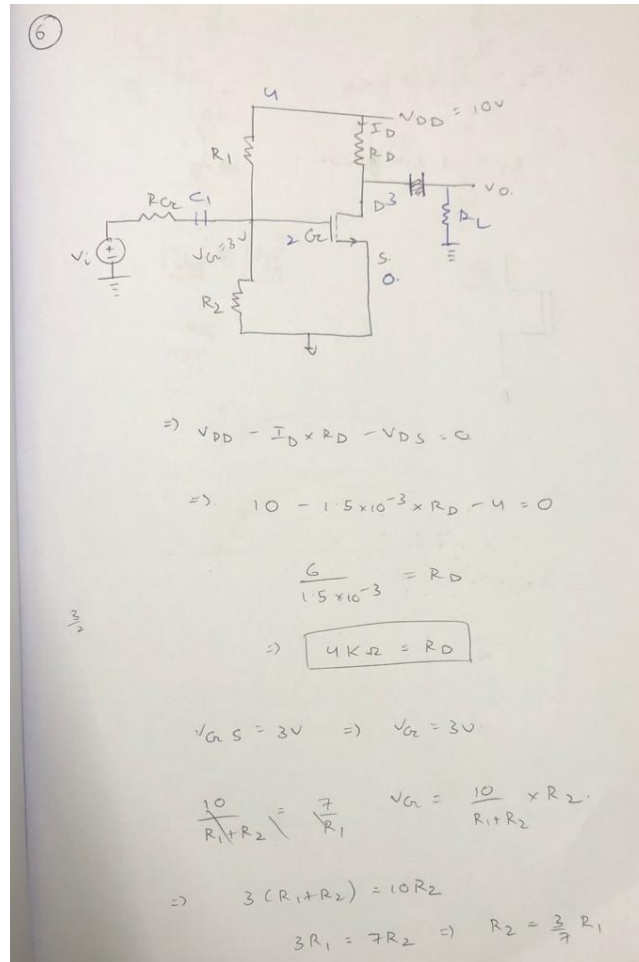 6
4
VDD = 10V
ID
R1
RD
RG C1
D3
VO.
RL
Vi
VG=3V
2 G
S.
0.
R2
=> VDD - ID × RD - VDS = 0
=> 10 - 1.5×10⁻³ × RD - 4 = 0
6 / 1.5×10⁻³ = RD
3/2
=> 4KΩ = RD
VGS = 3V => VG = 3V.
10 / R1+R2 = 7 / R1 VG = 10 / R1+R2 × R2.
=> 3(R1+R2) = 10R2
3R1 = 7R2 => R2 = 3/7 R1